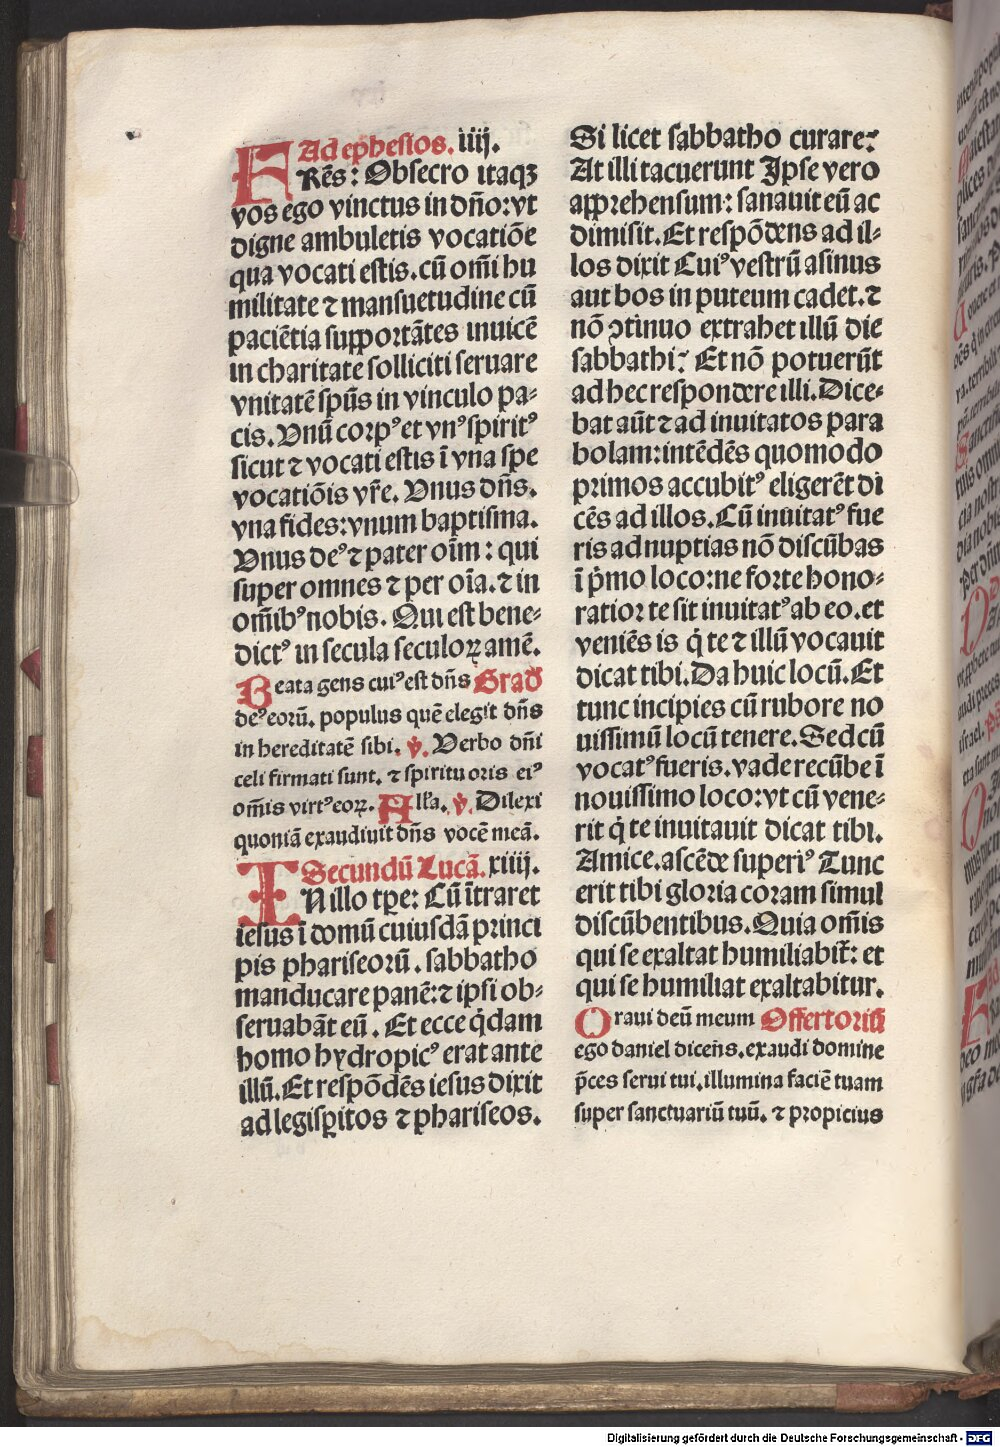 Ad ep̄hesios. iiij.
FRēs: Obsecro itaqꝫ
vos ego vinctus in dn̄o: vt
digne ambuletis vocatiōe
qua vocati estis. cū om̄i hu
militate ⁊ mansuetudine cū
paciētia supportātes inuicē
in charitate solliciti seruare
vnitatē spūs in vinculo pa-
cis. Vnū corpꝰ et vnꝰ spiritꝰ
sicut ⁊ vocati estis ī vna spe
vocatiōis vr̄e. Vnus dn̄s.
vna fides: vnum baptisma.
Vnus deꝰ ⁊ pater oīm: qui
super omnes ⁊ per oīa. ⁊ in
om̄ibꝰ nobis. Qui est bene-
dictꝰ in secula seculoꝝ amē.
Beata gens cuiꝰ est dn̄s Grad̄
deꝰ eorū. populus quē elegit dn̄s
in hereditatē sibi. ℣. Verbo dn̄i
celi firmati sunt. ⁊ spiritu oris eiꝰ
om̄is virtꝰ eoꝝ. All'a. ℣. Dilexi
quoniā exaudiuit dn̄s vocē meā.
Secundū Lucā. xiiij.
IN illo tp̄e: Cū ītraret
iesus ī domū cuiusdā princi
pis phariseorū. sabbatho
manducare panē: ⁊ ipsi ob-
seruabāt eū. Et ecce q̇dam
homo hydropicꝰ erat ante
illū. Et respōdēs iesus dixit
ad legisꝑitos ⁊ phariseos.
Si licet sabbatho curare?
At illi tacuerunt Ipse vero
apprehensum: sanauit eū ac
dimisit. Et respōdens ad il-
los dixit Cuiꝰ vestrū asinus
aut bos in puteum cadet. ⁊
nō ꝯtinuo extrahet illū die
sabbathi? Et nō potuerūt
ad hec respondere illi. Dice-
bat aūt ⁊ ad inuitatos para
bolam: intēdēs quomodo
primos accubitꝰ eligerēt di
cēs ad illos. Cū inuitatꝰ fue
ris ad nuptias nō discūbas
ī p̍mo loco: ne forte hono-
ratior te sit inuitatꝰ ab eo. et
veniēs is q̇ te ⁊ illū vocauit
dicat tibi. Da huic locū. Et
tunc incipies cū rubore no
uissimū locū tenere. Sed cū
vocatꝰ fueris. vade recūbe ī
nouissimo loco: vt cū vene-
rit q̇ te inuitauit dicat tibi.
Amice. ascēde superiꝰ Tunc
erit tibi gloria coram simul
discūbentibus. Quia om̄is
qui se exaltat humiliabit̄: et
qui se humiliat exaltabitur.
Oraui deū meum Offertoriū
ego daniel dicen̄s. exaudi domine
p̄ces serui tui. illumina faciē tuam
super sanctuariū tuū. ⁊ propicius
Digitalisierung gefördert durch die Deutsche Forschungsgemeinschaft - DFG